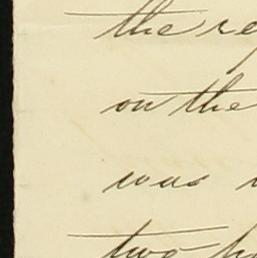 the re
on the
was
two h